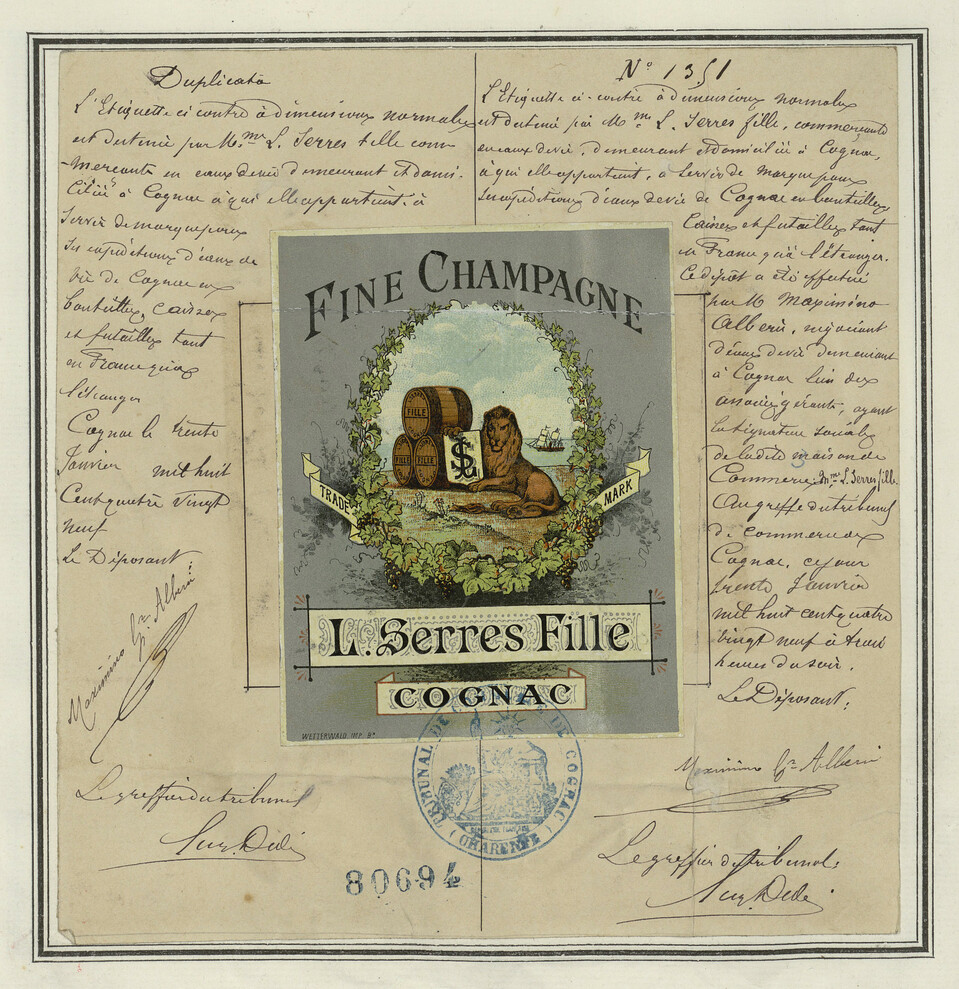 Duplicata
L'Etiquette ci contre à dimensions normales
est destinée par Mme L. Serres fille com
-merçante en eaux devie demeurant et domi-
ciliée à Cognac à qui elle appartient, à
servir de marque pour
ses expéditions d'eaux de
vie de Cognac en
bouteilles, caisses
et futailles tant
en France qu'à
l'étranger
Cognac le trente
Janvier mil huit
Cent quatre vingt
neuf
Le Déposant
Maximino Gr. Alberü
Le greffier du tribunal
No 1351
L'Etiquette ci-contre à dimensions normales
est destinée par Mme L. Serres fille, commerçante
en eaux devie, demeurant et domiciliée à Cognac,
à qui elle appartient, à servir de marque pour
ses expéditions d'eaux de vie de Cognac en bouteilles,
Caisses et futailles tant
en France qu'à l'étranger.
Ce dépôt a été effectué
par M Maximino
Alberü, négociant
d'eaux devie demeurant
à Cognac l'un des
associés gérants, ayant
la signature sociale
de ladite maison de
Commerce Mme L. Serres fille
Au greffe du tribunal
de commerce de
Cognac, ce jour
trente Janvier
mil huit cent quatre
vingt neuf à trois
heures du soir.
Le Déposant.
Maximino Gr Alberü
Le greffier du tribunal
FINE CHAMPAGNE
FILLE
FILLE FILLE
S
TRADE MARK
L. Serres Fille
COGNAC
WETTERWALD IMP. Bx
TRIBUNAL DE COMMERCE DE COGNAC
REPUBLIQUE FRANÇAISE
(CHARENTE)
80694